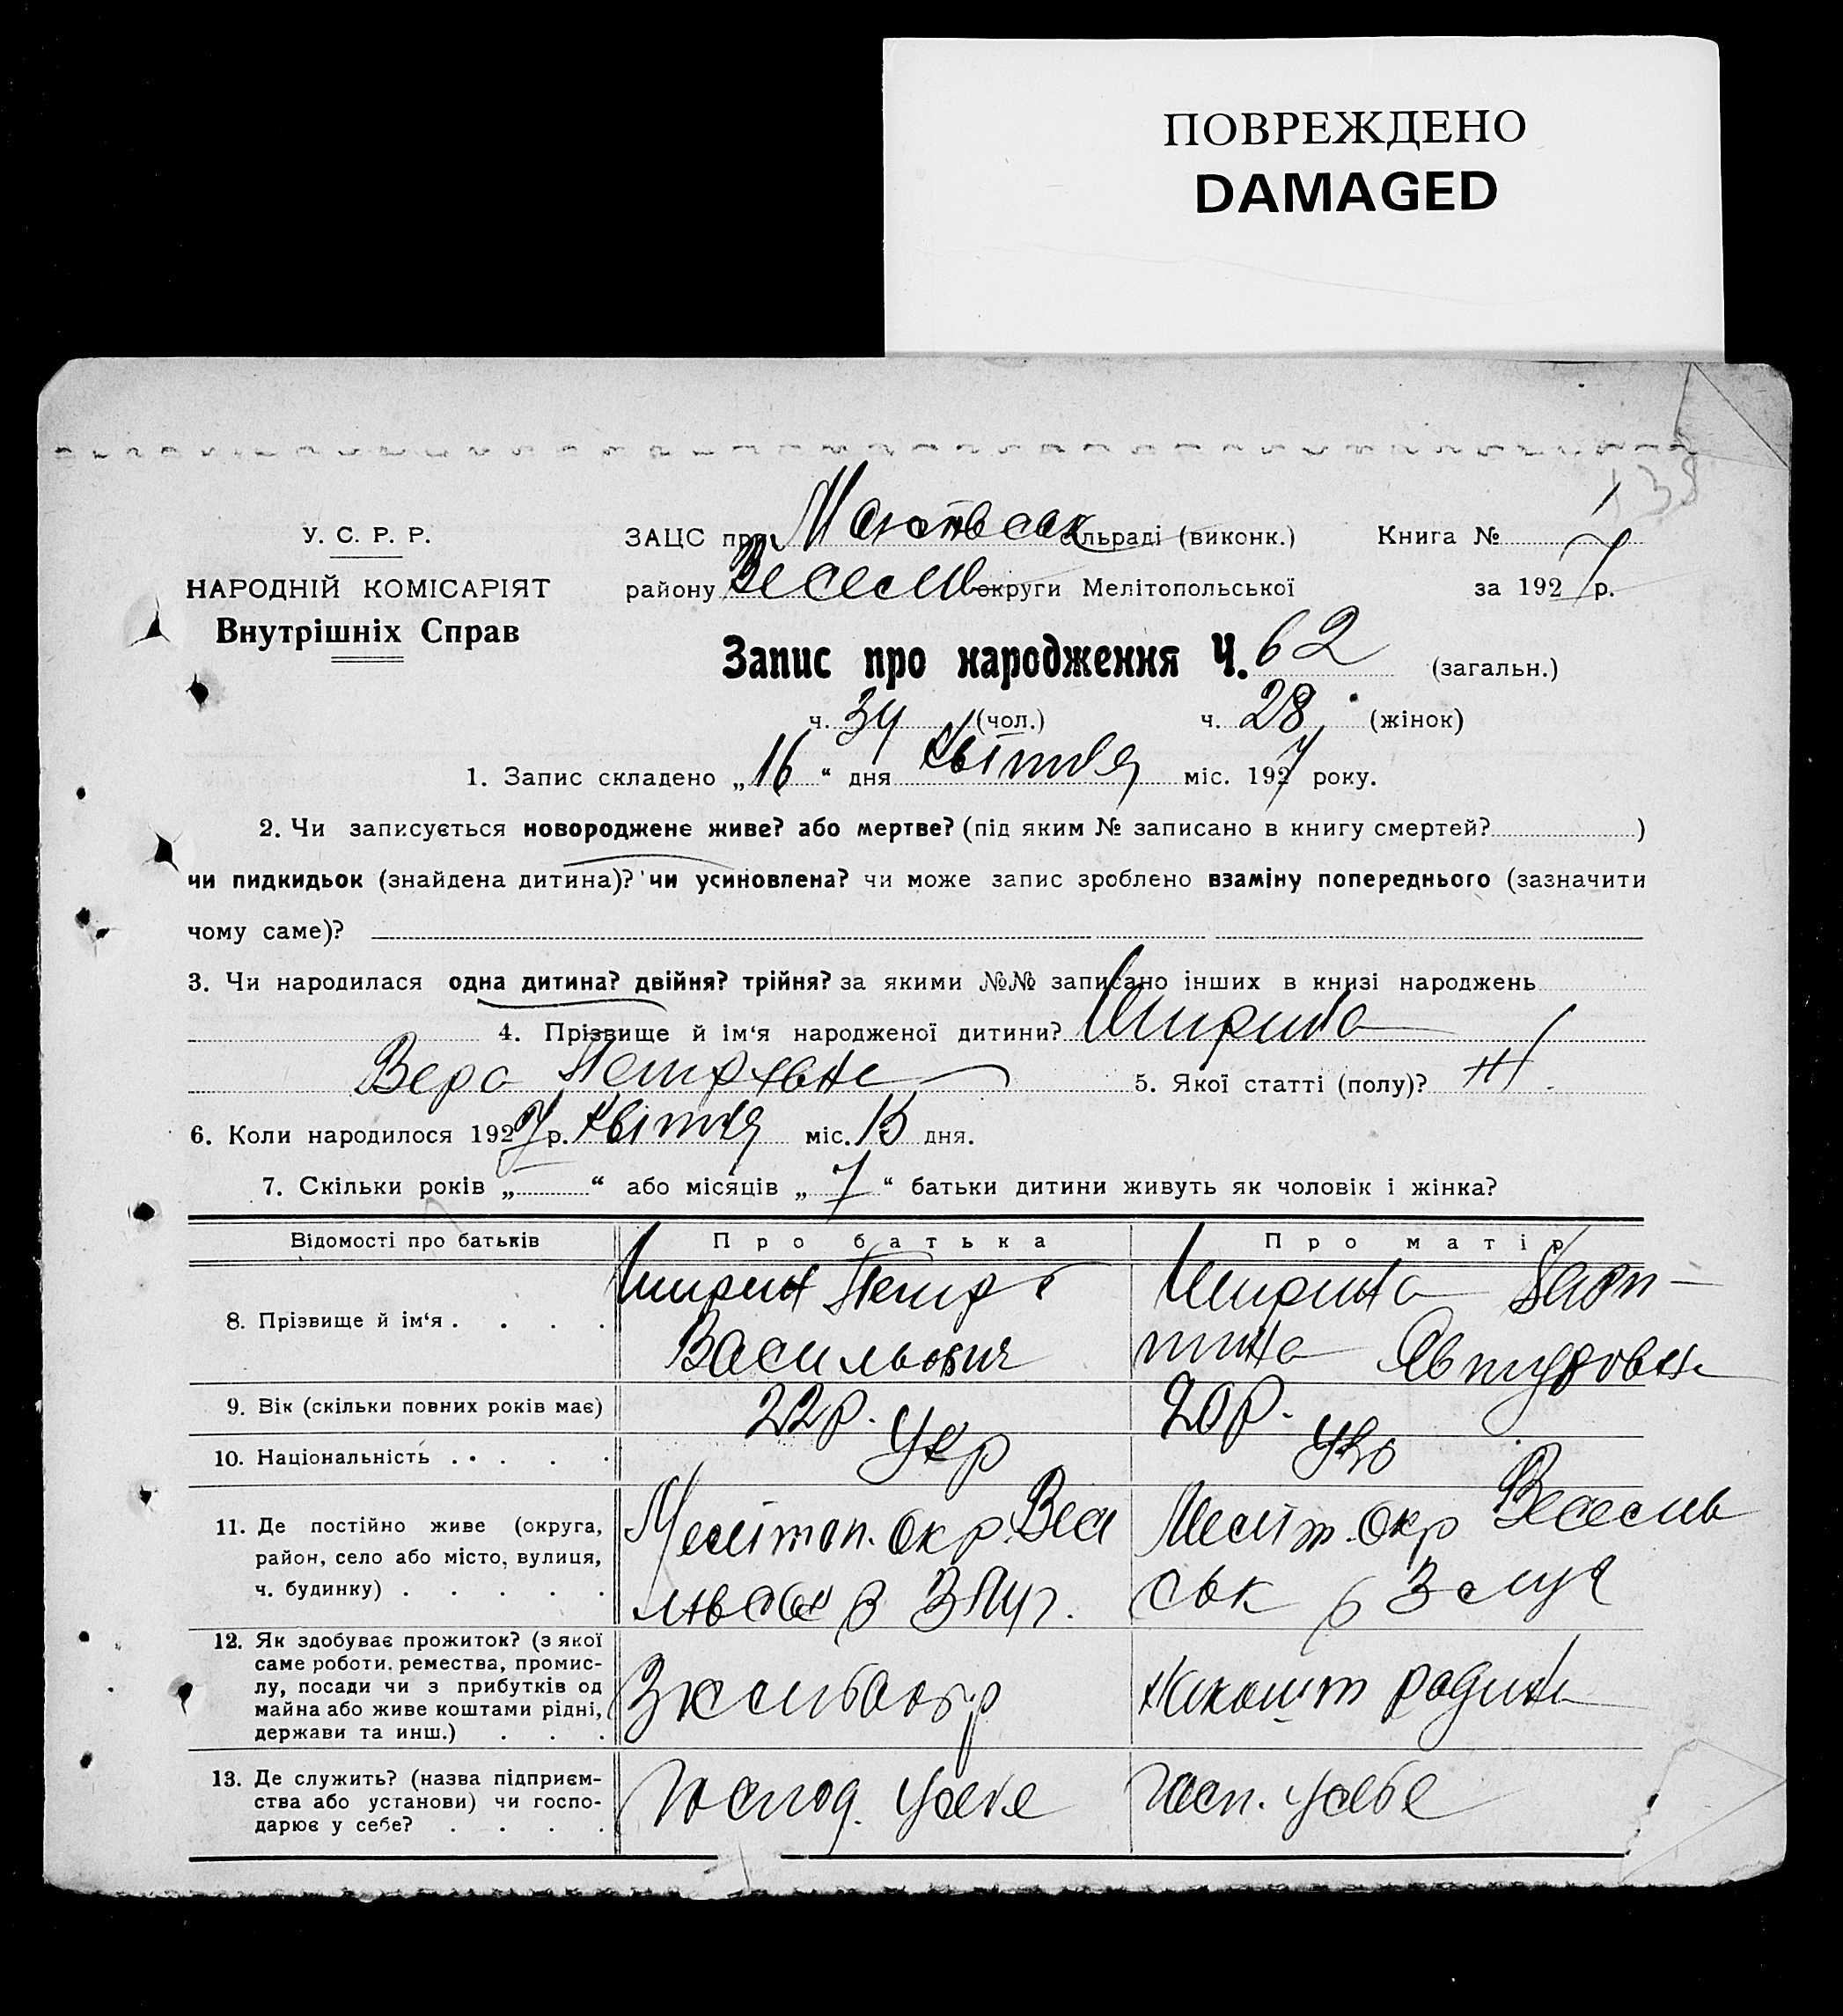 ПОВРЕЖДЕНО
DAMAGED
138
У. С. Р. Р.
НАРОДНІЙ КОМІСАРІЯТ
Внутрішніх Справ
ЗАЦС при сільраді (виконк.) Книга № 1
району округи Мелітопольської за 1927 р.
Запис про народження Ч. 62 (загальн.)
ч. 34 (чол.) ч. 28 (жінок)
1. Запис складено „16“ дня квітня міс. 1927 року.
2. Чи записується новороджене живе? або мертве? (під яким № записано в книгу смертей? )
чи пидкидьок (знайдена дитина)? чи усиновлена? чи може запис зроблено взаміну попереднього (зазначити
чому саме)?
3. Чи народилася одна дитина? двійня? трійня? за якими №№ записано інших в книзі народжень
4. Прізвище й ім‘я народженої дитини? Ширина
Вера Петровна 5. Якої статті (полу)? Ж
6. Коли народилося 1927 р. квітня міс. 15 дня.
7. Скільки років „ “ або місяців „7“ батьки дитини живуть як чоловік і жінка?
Відомості про батьків Про батька Про матір
8. Прізвище й ім‘я . . . . Ширин Петро Ширина
Васильович
9. Вік (скільки повних років має) 22 р. 20 р.
10. Національність . . . . . Укр Укр
11. Де постійно живе (округа, Мелітоп. окр. Весе Меліт. окр Веселов
район, село або місто, вулиця,
ч. будинку) . . . . . ськ
12. Як здобуває прожиток? (з якої
саме роботи, ремества, промис-
лу, посади чи з прибутків од
майна або живе коштами рідні, Зхлибооб·р Накошт родини
держави та инш.) . . .
13. Де служить? (назва підприєм-
ства або установи) чи госпо- Господ. усебе Госп. усебе
дарює у себе? . . . .